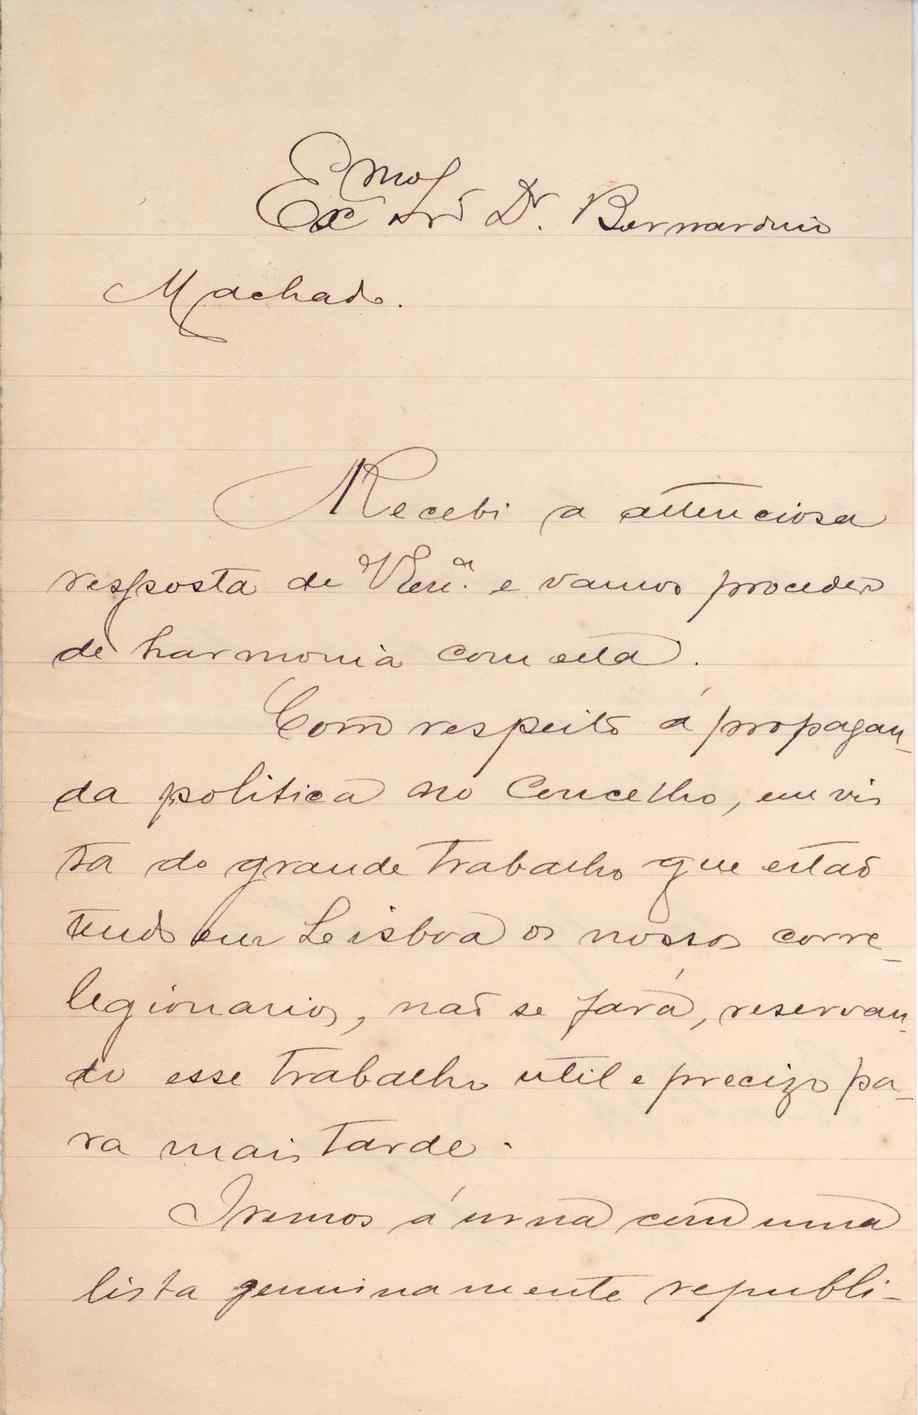 Exmo Snr Dr. Bernardino
Machado.
Recebi a attenciosa
resposta de V Exa. e vamos proceder
de harmonia com ella.
Com respeito á propagan-
da politica no Concelho, em vis
ta do grande trabalho que estão
tendo em Lisboa os nossos corre-
legionarios, não se fará, reservan-
do esse trabalho util e precizo pa-
ra mais tarde.
Iremos á urna com uma
lista genuinamente republi-